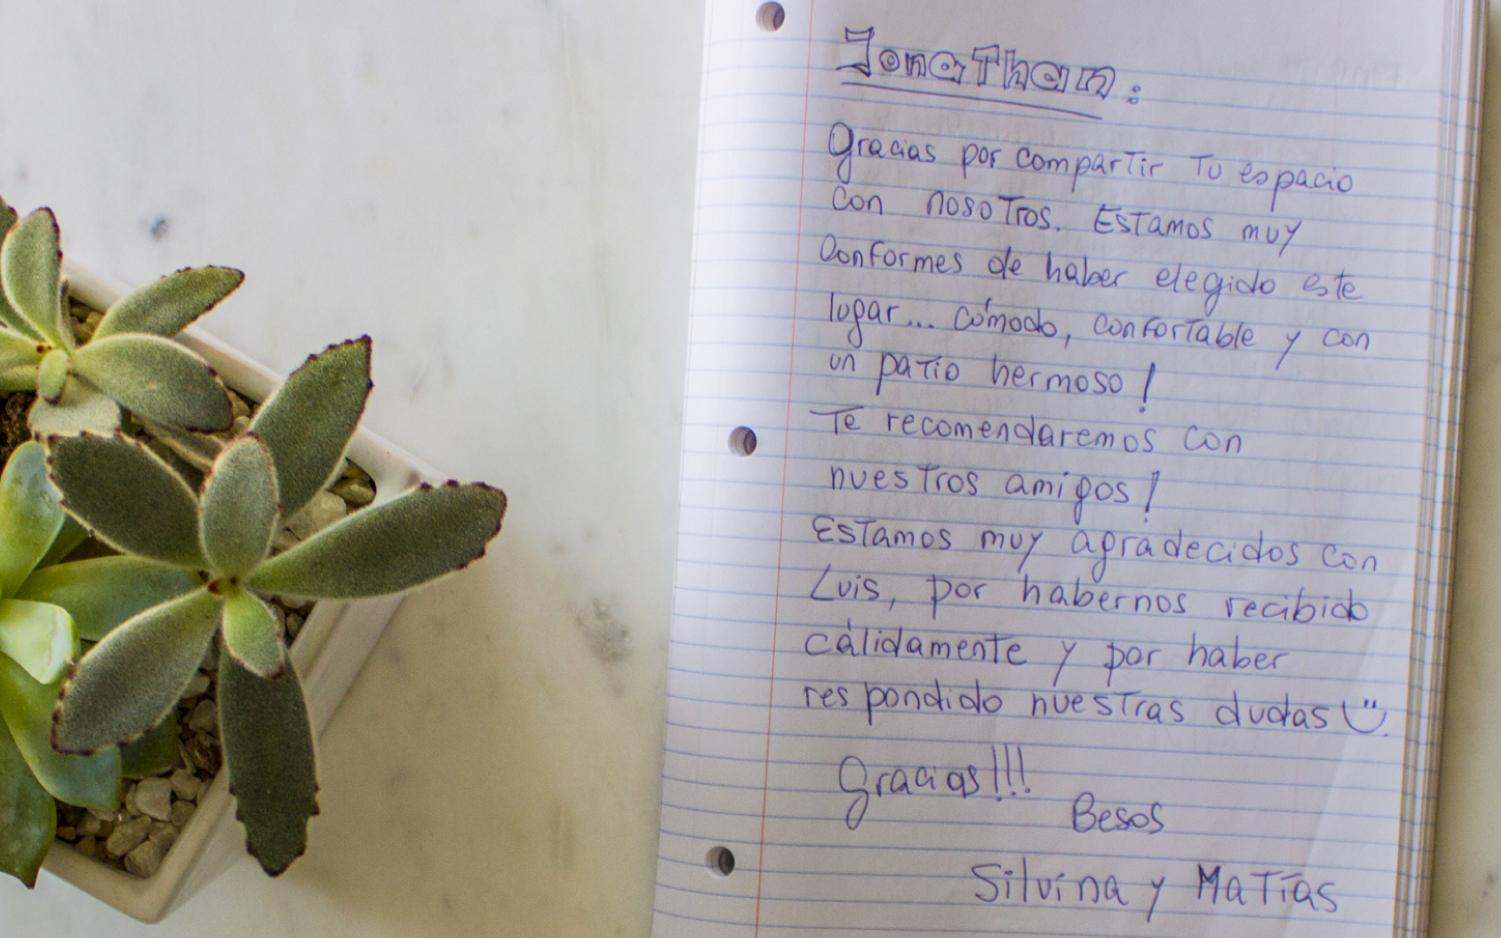 Jonathan:
Gracias por compartir tu espacio
con nosotros. Estamos muy
conformes de haber elegido este
lugar... cómodo, confortable y con
un patio hermoso!
Te recomendaremos con
nuestros amigos!
Estamos muy agradecidos con
Luis, por habernos recibido
cálidamente y por haber
respondido nuestras dudas Ü.
Gracias!!!
Besos
Silvina y Matías